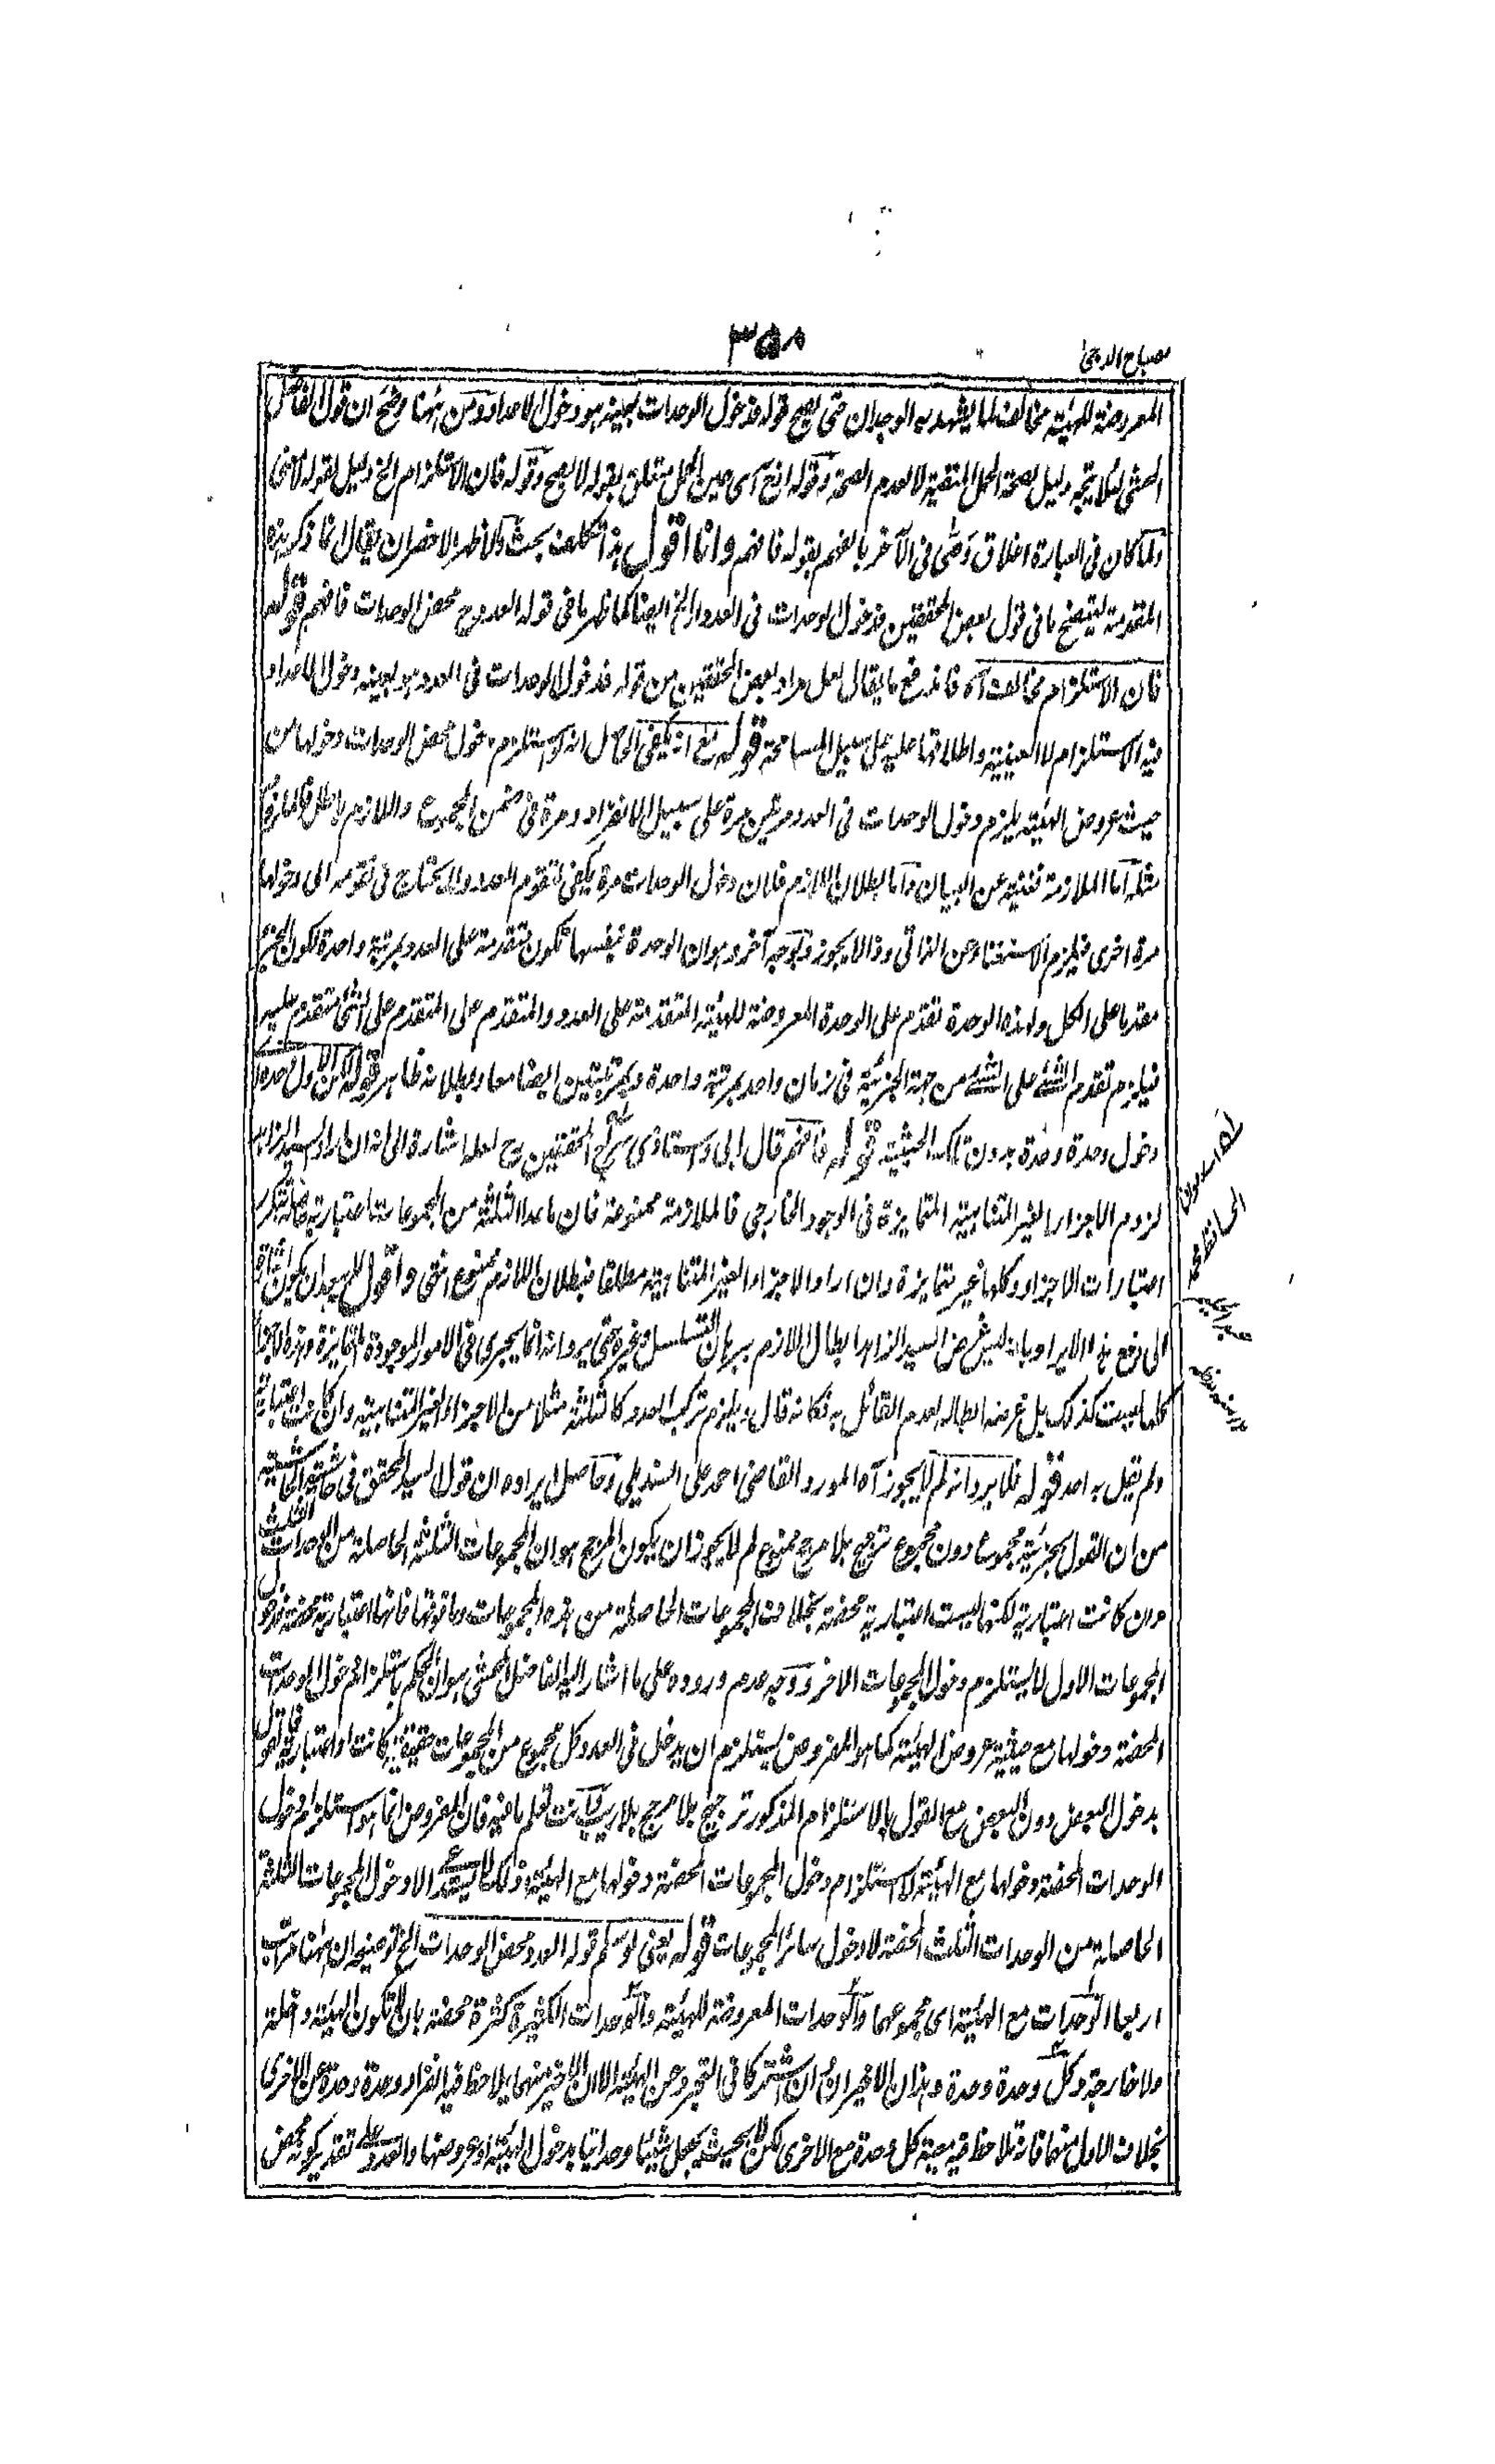 مصباح الدجى
٣٥٨
المعروضة للهيئة مخالف لما يشهد به الوجدان حتى يصح قوله فدخول الوحدات بعينه هو دخول الاعداد ومن ههنا وضح ان قول الفاضل
المحشى لئلا يتجه دليل لصحة الحمل المنفية لا لعدم الصحة وقوله اذ ح اى حين الحمل متعلق بقوله لا يصح وقوله فان الاستلزام الخ دليل لقوله لا يخفى
ولما كان فى العبارة اغلاق وصى فى الآخر بالفهم بقوله فافهم وانا اقول هذا تكلف بحت والاظهر الاخصر ان يقال انما ذكر هذه
المقدمة ليتضح ما فى قول بعض المحققين فدخول الوحدات فى العدد الخ ايضا كما ظهر ما فى قوله العدد ح محض الوحدات فافهم قوله
فان الاستلزام مخالفت آه فاندفع ما يقال لعل مراد بعض المحققين من قوله فدخول الوحدات فى العدد هو بعينه دخول الاعداد
فيه الاستلزام لا العينية واطلاقها عليه على سبيل المسامحة قوله مع انه يكفى الحاصل انه لو استلزم دخول محض الوحدات دخولها من
حيث عروض الهيئة يلزم دخول الوحدات فى العدد مرتين مرة على سبيل الانفراد ومرة فى ضمن المجموع واللازم باطل فالملزوم
مثله اما الملازمة فغنية عن البيان واما بطلان اللازم فلان دخول الوحدات مرة يكفى لتقوم العدد ولا يحتاج فى تقومه الى دخولها
مرة اخرى فيلزم الاستغناء عن الذاتى وذا لا يجوز وبوجه آخر وهو ان الوحدة نفسها تكون متقدمة على العدد بمرتبة واحدة لكون الجزء
مقدما على الكل ولهذه الوحدة تقدم على الوحدة المعروضة للهيئة المتقدمة على العدد والمتقدم على المتقدم على الشئ متقدم عليه
فيلزم تقدم الشئ على الشئ من جهة الجزئية فى زمان واحد بمرتبة واحدة وبمرتبتين ايضا معا وبطلانه ظاهر قوله لان الاول
دخول وحدة وحدة بدون تلك الحيثية قوله فافهم قال ابى واستاذى سراج المحققين رح لعله اشارة الى انه ان اراد السيد الزاهد
لزوم الاجزاء الغير المتناهية المتمايزة فى الوجود الخارجى فالملازمة ممنوعة فان ما عدا الثلثة من المجموعات اعتبارية
اعتبارات الاجزاء وكلها غير متمايزة وان اراد الاجزاء الغير المتناهية مطلقا فبطلان اللازم ممنوع انتهى واقول لا يبعد ان يكون اشارة
الى دفع هذا الايراد بانه ليس غرض السيد الزاهد ابطال اللازم ببرهان التسلسل وغيره حتى يرد انه انما يجرى فى الامور الموجودة المتمايزة وهذه الاجزاء
كلها ليست كذلك بل غرضه ابطاله لعدم القائل به فكانه قال ويلزم تركب العدد كالثلثة مثلا من الاجزاء الغير المتناهية وان كانت اعتبارية
ولم يقل به احد قوله فلا يرد انه لم لا يجوز آه المورد القاضى احمد على السنديلى وحاصل ايراده ان قول السيد المحقق فى حاشية الحاشية
من ان القول بجزئية مجموع دون مجموع ترجيح بلا مرجح ممنوع لم لا يجوز ان يكون المرجح هو ان المجموعات الثلثة الحاصلة من الوحدات الثلث
وان كانت اعتبارية لكنها ليست اعتبارية محضة بخلاف المجموعات الحاصلة من هذه المجموعات وما فوقها فانها اعتبارية محضة فدخول
المجموعات الاول لا يستلزم دخول المجموعات الاخر ووجه عدم وروده على ما اشار اليه الفاضل المحشى هو ان الحكم باستلزام دخول الوحدات
المحضة دخولها مع حيثية عروض الهيئة كما هو المفروض يستلزم ان يدخل فى العدد كل مجموع من المجموعات حقيقية كانت او اعتبارية فالقول
بدخول البعض دون البعض مع القول بالاستلزام المذكور ترجيح بلا مرجح بلا ريب وانت تعلم ما فيه فان المفروض انما هو استلزام دخول
الوحدات المحضة دخولها مع الهيئة لا استلزام دخول المجموعات المحضة دخولها مع الهيئة وذلك لا يستدعى الا دخول المجموعات الثلثة
الحاصلة من الوحدات الثلث المحضة لا دخول سائر المجموعات قوله يعنى لو سلم قوله العدد محض الوحدات الخ توضيحه ان ههنا مراتب
اربعا الوحدات مع الهيئة اى مجموعهما والوحدات المعروضة للهيئة والوحدات الكثيرة كثرة محضة بان لا تكون الهيئة داخلة
ولا خارجة وكل وحدة وحدة وهذان الاخيران وان اشتركا فى التجرد عن الهيئة الا ان الاخير منهما يلاحظ فيه انفراد وحدة وحدة عن الاخرى
بخلاف الاول منهما فانه تلاحظ فيه معية كل وحدة مع الاخرى لكن لا بحيث يجعل شيئا وحدانيا بدخول الهيئة او عروضها والعدد على تقدير كونه محض
الحافظ محمد
عبد الحليم